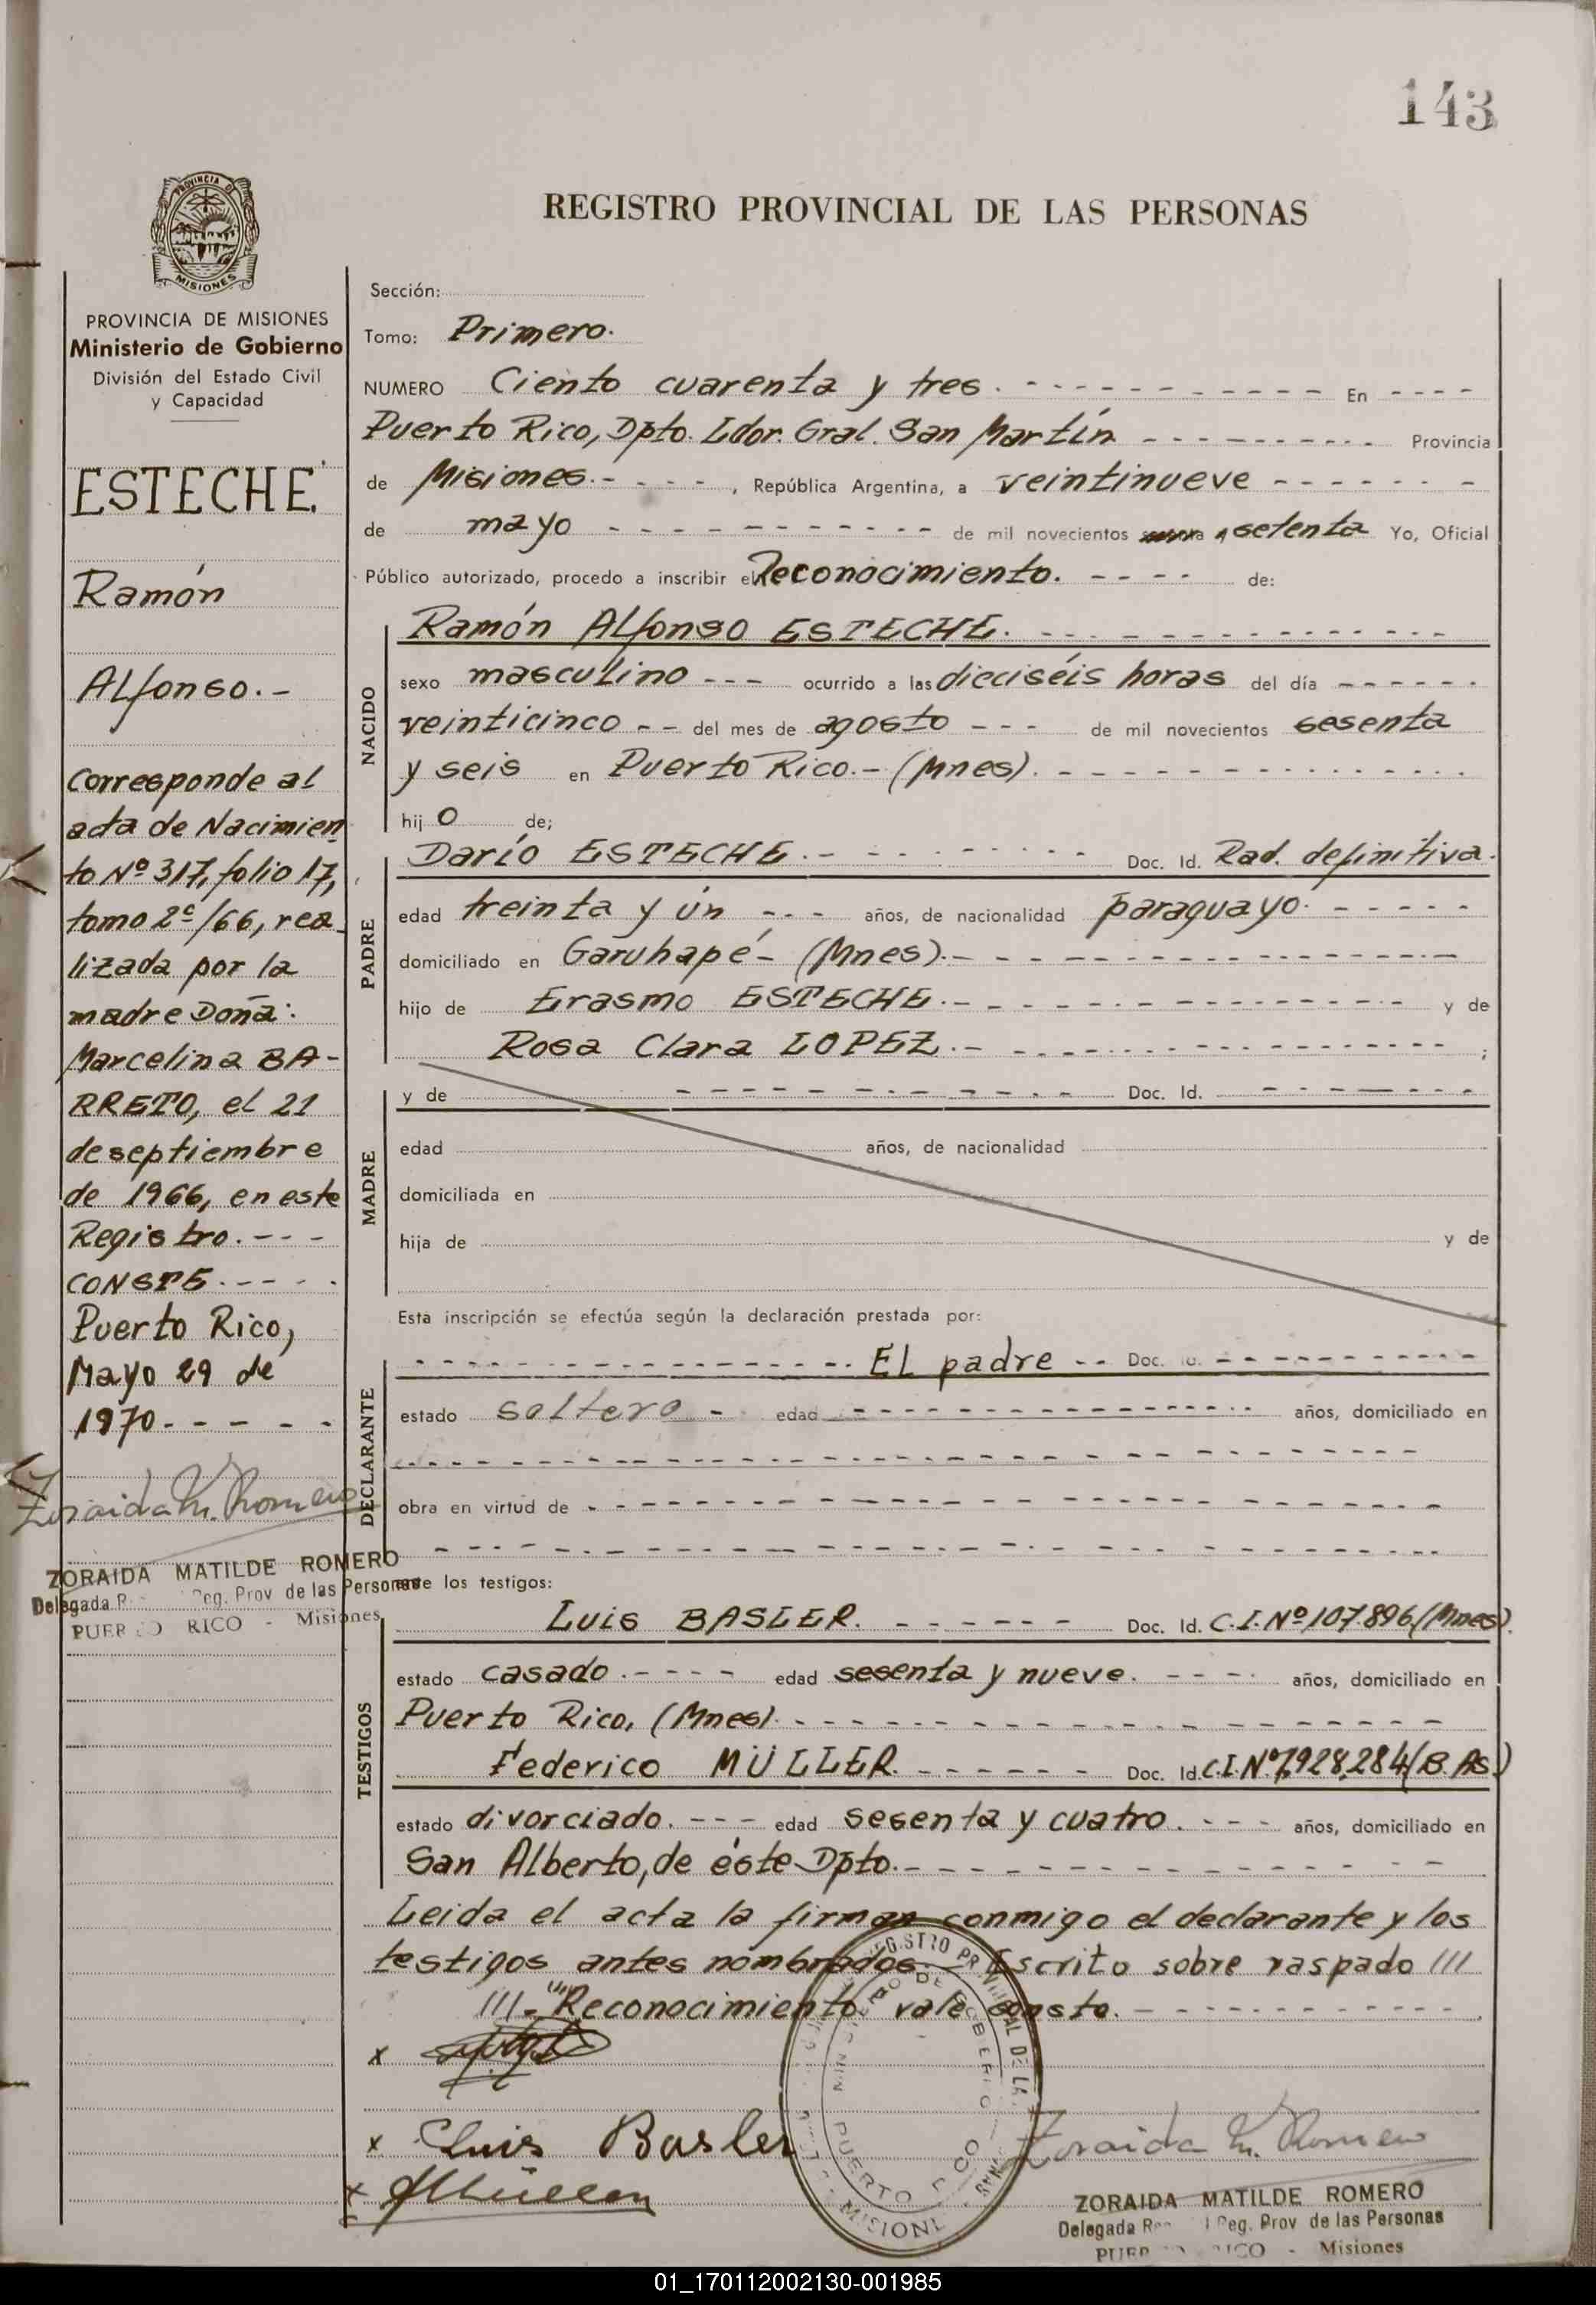 143
PROVINCIA DE
MISIONES
REGISTRO PROVINCIAL DE LAS PERSONAS
PROVINCIA DE MISIONES
Ministerio de Gobierno
División del Estado Civil
y Capacidad
ESTECHE.
Ramón
Alfonso.-
Corresponde al
acta de Nacimien
to Nº 317, folio 17,
tomo 2º/66, rea
lizada por la
madre Doña:
Marcelina BA-
RRETO, el 21
de septiembre
de 1966, en este
Registro.---
CONSTE.----
Puerto Rico,
Mayo 29 de
1970-----
Zoraida M. Romero
ZORAIDA MATILDE ROMERO
Delegada Reg. Prov de las Personas
PUERTO RICO - Misiones
Sección:
Tomo: Primero.
NUMERO Ciento cuarenta y tres. En
Puerto Rico, Dpto. Ldor. Gral. San Martín Provincia
de Misiones.-, República Argentina, a veintinueve
de mayo de mil novecientos setenta Yo, Oficial
Público autorizado, procedo a inscribir el Reconocimiento. de:
NACIDO
Ramón Alfonso ESTECHE.
sexo masculino ocurrido a las dieciséis horas del día
veinticinco del mes de agosto de mil novecientos sesenta
y seis en Puerto Rico.- (Mnes).
hijo de;
PADRE
Darío ESTECHE.- Doc. Id. Rad. definitiva.
edad treinta y ún años, de nacionalidad paraguayo.
domiciliado en Garuhapé- (Mnes).-
hijo de Erasmo ESTECHE.- y de
Rosa Clara LOPEZ.- ;
MADRE
y de Doc. Id.
edad años, de nacionalidad
domiciliada en
hija de y de
Esta inscripción se efectúa según la declaración prestada por:
DECLARANTE
El padre -- Doc. Id.
estado soltero - edad años, domiciliado en
obra en virtud de
ante los testigos:
TESTIGOS
Luis BASLER. Doc. Id. C.I.Nº107.896(Mnes).
estado casado. edad sesenta y nueve. años, domiciliado en
Puerto Rico, (Mnes).
Federico MÜLLER. Doc. Id. C.I.Nº1,928,284(B.AS.)
estado divorciado. edad sesenta y cuatro. años, domiciliado en
San Alberto, de éste Dpto.-
Leida el acta la firman conmigo el declarante y los
testigos antes nombrados.- Escrito sobre raspado ///
///-"Reconocimiento" vale conste.-
x
x Luis Basler
x FMüller
Zoraida M. Romero
PUERTO RICO
MISIONES
ZORAIDA MATILDE ROMERO
Delegada Reg. Prov de las Personas
PUERTO RICO - Misiones
01_170112002130-001985